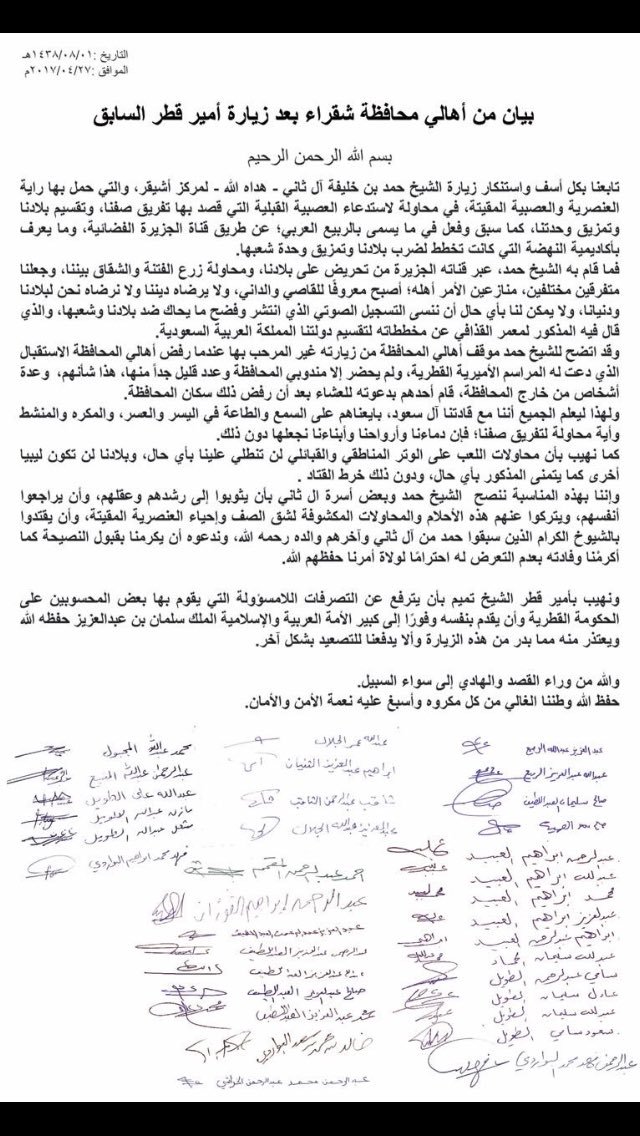 التاريخ :١٤٣٨/٠٨/٠١هـ
الموافق :٢٠١٧/٠٤/٢٧م
بيان من أهالي محافظة شقراء بعد زيارة أمير قطر السابق
بسم الله الرحمن الرحيم
تابعنا بكل أسف واستنكار زيارة الشيخ حمد بن خليفة آل ثاني - هداه الله - لمركز أشيقر، والتي حمل بها راية
العنصرية والعصبية المقيتة، في محاولة لاستدعاء العصبية القبلية التي قصد بها تفريق صفنا، وتقسيم بلادنا
وتمزيق وحدتنا، كما سبق وفعل في ما يسمى بالربيع العربي؛ عن طريق قناة الجزيرة الفضائية، وما يعرف
بأكاديمية النهضة التي كانت تخطط لضرب بلادنا وتمزيق وحدة شعبها.
فما قام به الشيخ حمد، عبر قناته الجزيرة من تحريض على بلادنا، ومحاولة زرع الفتنة والشقاق بيننا، وجعلنا
متفرقين مختلفين، منازعين الأمر أهله؛ أصبح معروفًا للقاصي والداني، ولا يرضاه ديننا ولا نرضاه نحن لبلادنا
ودنيانا، ولا يمكن لنا بأي حال أن ننسى التسجيل الصوتي الذي انتشر وفضح ما يحاك ضد بلادنا وشعبها، والذي
قال فيه المذكور لمعمر القذافي عن مخططاته لتقسيم دولتنا المملكة العربية السعودية.
وقد اتضح للشيخ حمد موقف أهالي المحافظة من زيارته غير المرحب بها عندما رفض أهالي المحافظة الاستقبال
الذي دعت له المراسم الأميرية القطرية، ولم يحضر إلا مندوبي المحافظة وعدد قليل جداً منها، هذا شأنهم، وعدة
أشخاص من خارج المحافظة، قام أحدهم بدعوته للعشاء بعد أن رفض ذلك سكان المحافظة.
ولهذا ليعلم الجميع أننا مع قادتنا آل سعود، بايعناهم على السمع والطاعة في اليسر والعسر، والمكره والمنشط
وأية محاولة لتفريق صفنا؛ فإن دماءنا وأرواحنا وأبناءنا نجعلها دون ذلك.
كما نهيب بأن محاولات اللعب على الوتر المناطقي والقبائلي لن تنطلي علينا بأي حال، وبلادنا لن تكون ليبيا
أخرى كما يتمنى المذكور بأي حال، ودون ذلك خرط القتاد .
وإننا بهذه المناسبة ننصح الشيخ حمد وبعض أسرة ال ثاني بأن يثوبوا إلى رشدهم وعقلهم، وأن يراجعوا
أنفسهم، ويتركوا عنهم هذه الأحلام والمحاولات المكشوفة لشق الصف وإحياء العنصرية المقيتة، وأن يقتدوا
بالشيوخ الكرام الذين سبقوا حمد من آل ثاني وآخرهم والده رحمه الله، وندعوه أن يكرمنا بقبول النصيحة كما
أكرمْنا وفادته بعدم التعرض له احترامًا لولاة أمرنا حفظهم الله.
ونهيب بأمير قطر الشيخ تميم بأن يترفع عن التصرفات اللامسؤولة التي يقوم بها بعض المحسوبين على
الحكومة القطرية وأن يقدم بنفسه وفورًا إلى كبير الأمة العربية والإسلامية الملك سلمان بن عبدالعزيز حفظه الله
ويعتذر منه مما بدر من هذه الزيارة وألا يدفعنا للتصعيد بشكل آخر.
والله من وراء القصد والهادي إلى سواء السبيل.
حفظ الله وطننا الغالي من كل مكروه وأسبغ عليه نعمة الأمن والأمان.
عبدالعزيز عبدالله الربيع
عبدالله عبدالعزيز الربيع
صالح سليمان العبداللطيف
عبدالرحمن ابراهيم العبيد
عبدالله ابراهيم العبيد
محمد ابراهيم العبيد
عبدالعزيز ابراهيم العبيد
ابراهيم عبدالرحمن العبيد
عبدالله سليمان الحماد
سامي عبدالرحمن الطويل
عادل سليمان الطويل
عبدالله سليمان الطويل
سعود سامي الطويل
عبدالرحمن فهد محمد البواردي
عبدالله عمر الجلال
ابراهيم عبدالعزيز القنيان
ثاقب عبدالرحمن الثاقب
عبدالعزيز عبدالله الجلال
احمد عبدالرحمن المقحم
عبدالرحمن ابراهيم الفوزان
عبدالرحمن عبدالعزيز العبداللطيف
صالح عبدالعزيز العبداللطيف
عمر عبدالعزيز العبداللطيف
خالد بن محمد سعد البواردي
عبدالرحمن محمد عبدالرحمن
محمد عبدالله المجيول
عبدالرحمن عبدالله السبيع
عبدالله علي الطويل
مازن عبدالله الطويل
مشعل عبدالله الطويل
فهد محمد ابراهيم البواردي